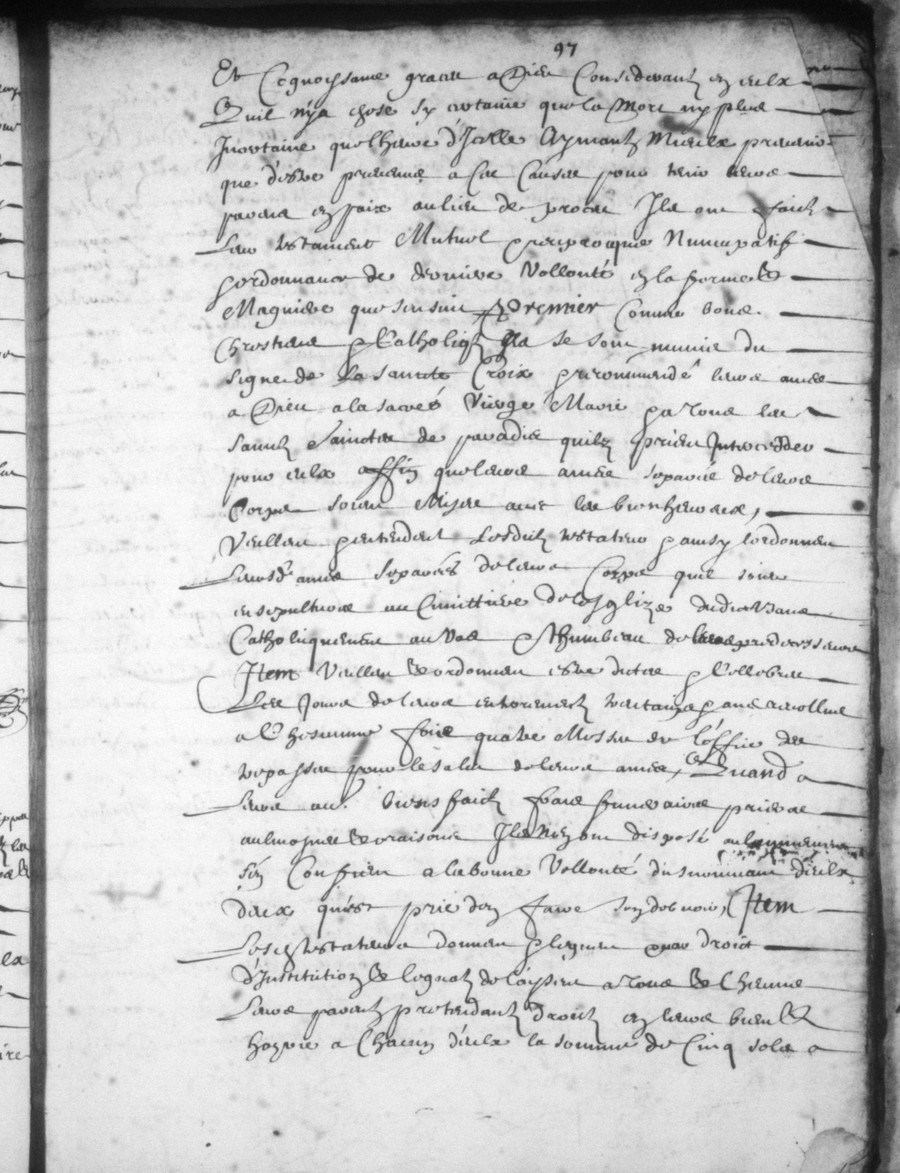 97
Et Cognoissance grace a Dieu Considerant en eulx
Quil nya chose sy certaine que la Mort ny plus
Incertaine que lheure d'Icelle Aymantz Mieulx prevenir
que d'estre prevenus a Ce Causse pour tenir leurs
parans en paix au lieu de proces Ilz ont faict
Leur testament Mutuel reciproque Nuncupatif
& ordonnance de derniere Vollonté en la forme &
Magniere que sensuit Premier Comme bons
Chrestiens & Catholiqz Ilz se sont munis du
signe de La saincte Croix & recommandé leurs ames
a Dieu a la sacreé Vierge Marie & a tous les
sainctz Sainctes de paradis quilz prient Interceder
pour eulx affin que leurs ames separeés de leurs
Corps soient Mises avec les bienheureux,
Veullent & entendent Lesdictz testateurs & ainsy lordonnent
Leursd. ames Separeés de leurs Corps quil soient
ensepultures au Cimittiere de lesglize dudict
Catholiquement au Vas & Thumbeau de leurs predecesseurs
Item Veullent & ordonnent estre dictes & Cellebrees
Les Jours de leurs enterrementz & an revollus
a lhonneur foie quatre Messes de l'office des
trepasses pour le salut de leurs ames, Et Quand a
Leurs au. biensfaictz frais funeraires prieres
aulmosnes & oraisons Ilz Nez ont disposé
sen Confient a la bonne Vollonté du survivant d'eulx
deux quest prie den faire son debvoir, Item
Lesd. testateurs donnent & leguent par droict
d'Institution & legnat delaissent a tous & Chescuns
Leurs parantz pretendantz droictz en leurs biens &
hoyrie a Chacun d'eulx la somme de Cinq solz